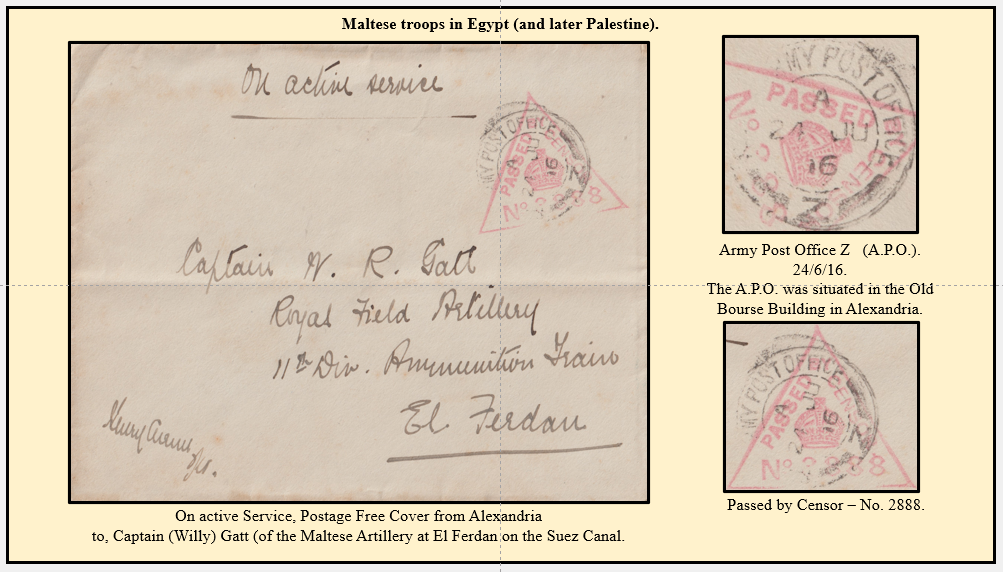 Maltese troops in Egypt (and later Palestine).
On active service
ARMY POST OFFICE
A
24 JU
16
Z
PASSED CENSOR
No 2888
Captain W. R. Gatt
Royal Field Artillery
11th Div. Ammunition Train
El Ferdan
Henry
On active Service, Postage Free Cover from Alexandria
to, Captain (Willy) Gatt (of the Maltese Artillery at El Ferdan on the Suez Canal.
MY POST OFFICE
A
24 JU
16
Z
PASSED
No
Army Post Office Z (A.P.O.).
24/6/16.
The A.P.O. was situated in the Old
Bourse Building in Alexandria.
MY POST OFFICE
A
24 JU
16
Z
PASSED
No 2888
Passed by Censor – No. 2888.